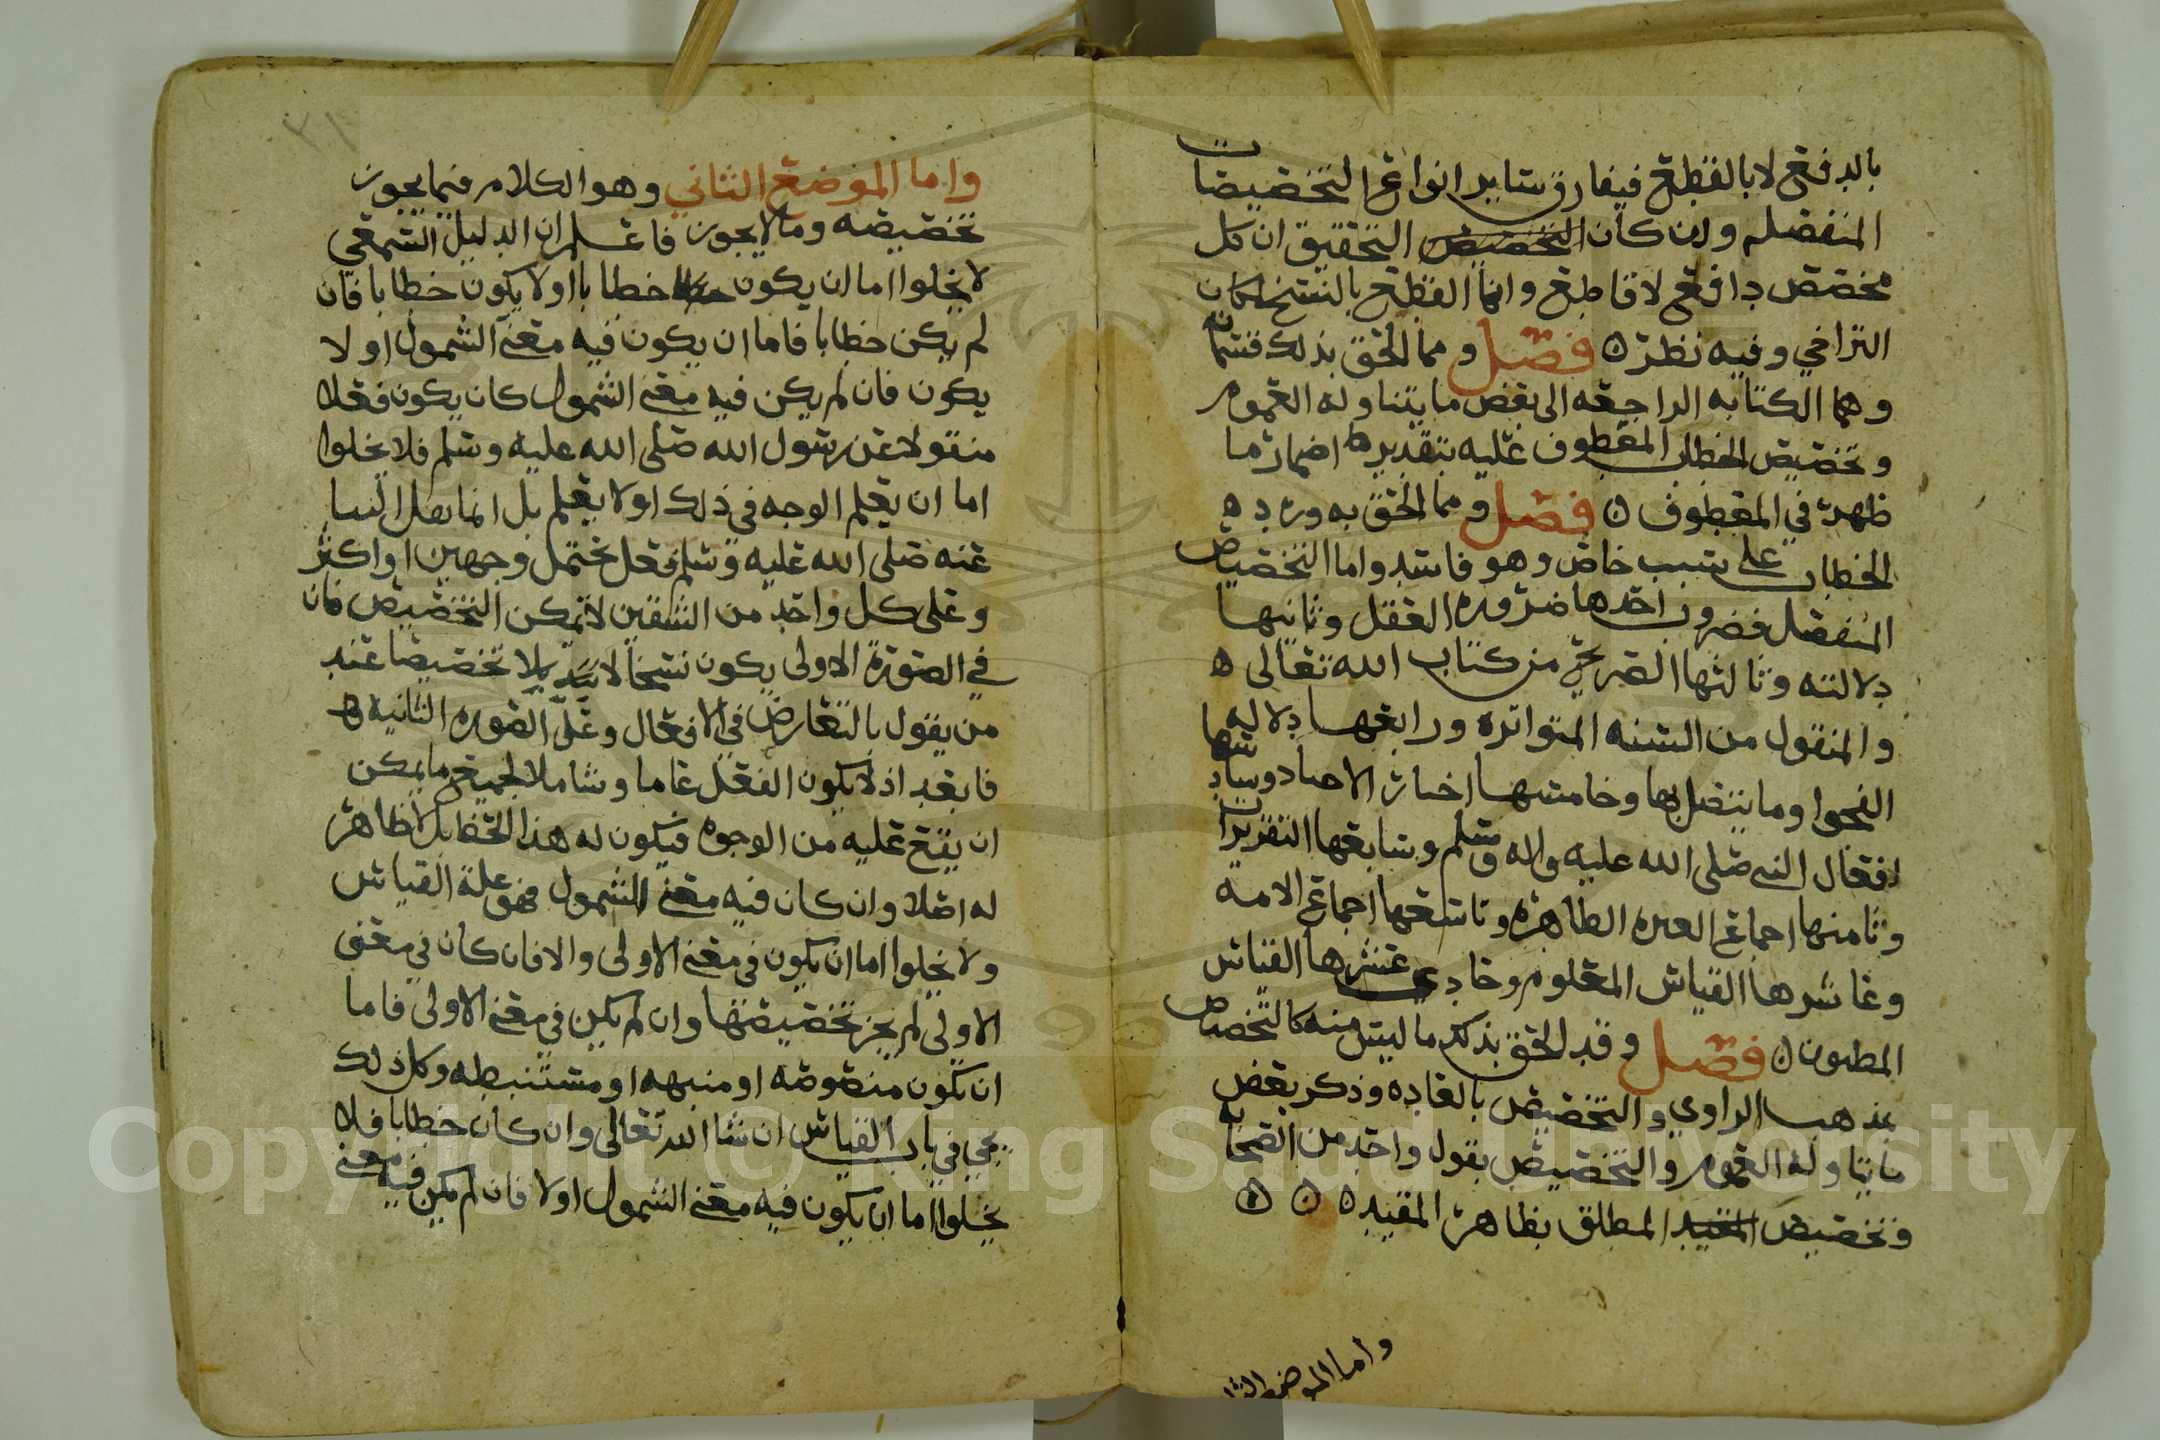 بالدفع لا بالقطع فيفارق ساير انواع التخصيصات
المنفصلم وان كان التخصيص التحقيق ان كل
مخصص دافع لا قاطع وانما القطع بالنسخ لمكان
التراخي وفيه نظر ۞ فصل ومما الحق بذلك قسمان
وهما الكنايه الراجعه الى بعض ما يتناوله العموم
وتخصيص الخطاب المعطوف عليه بتقدير اضمار ما
ظهر في المعطوف ۞ فصل ومما الحق به ورود
الخطاب على سبب خاص وهو فاسد واما التخصيص
المنفصل فضروب احدها ضروره العقل وثانيها
دلالته وثالثها الصريح من كتاب الله تعالى
والمنقول من السنه المتواتره ورابعها دلاله
الفحوا وما يتصل بها وخامسها اخبار الاحاد وسادسها
افعال النبي صلى الله عليه واله وسلم وسابعها التقريرات
وثامنها اجماع العتره الطاهره وتاسعها اجماع الامه
وعاشرها القياس المعلوم وحادي عشرها القياس
المظنون ۞ فصل وقد الحق بذلك ما ليس منه كالتخصيص
بمذهب الراوي والتخصيص بالعاده وذكر بعض
ما يتناوله العموم والتخصيص بقول واحد من الصحابة
وتخصيص المقيد المطلق بظاهر المقيد ۞ ۞ ۞
واما الموضع الثا
٣١
واما الموضع الثاني وهو الكلام فيما يجوز
تخصيصه وما لا يجوز فاعلم ان الدليل السمعي
لا يخلوا اما ان يكون خطابا او لا يكون خطابا فان
لم يكن خطابا فاما ان يكون فيه معنى الشمول او لا
يكون فان لم يكن فيه معنى الشمول كان يكون فعلا
منقولا عن رسول الله صلى الله عليه وسلم فلا يخلوا
اما ان يعلم الوجه في ذلك او لا يعلم بل انما نقل الينا
عنه صلى الله عليه وسلم فعل يحتمل وجهين او اكثر
وعلى كل واحد من الشقين لا يمكن التخصيص فان
في الصورة الاولى يكون نسخا لا تخصيصا عند
من يقول بالتعارض في الافعال وعلى الصوره الثانيه
فابعد اذ لا يكون الفعل عاما وشاملا لجميع ما يمكن
ان يقع عليه من الوجوه فيكون له هذا الحفا بل لا ظاهر
له اصلا وان كان فيه معنى الشمول فهو علة القياس
ولا يخلوا اما ان يكون في معنى الاولى والا فان كان في معنى
الاولى لم يجز تخصيصها وان لم يكن في معنى الاولى فاما
ان يكون منصوصه او منبهه او مستنبطه وكل ذلك
يجي في باب القياس ان شا الله تعالى وان كان خطابا فلا
يخلوا اما ان يكون فيه معنى الشمول او لا فان لم يكن فيه معنى
Copyright © King Saud University